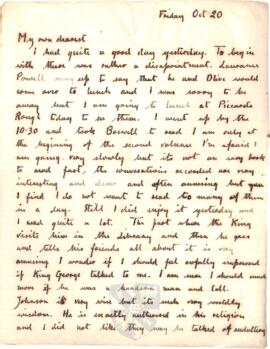 Friday Oct 20
My own dearest
I had quite a good day yesterday. To begin
with there was rather a disappointment. Lawrence
Powell rang up to say that he and Olive would
come over to lunch and I was sorry to be
away but I am going to lunch at Piccards
Rough today to see them. I went up by the
10.30 and took Boswell to read I am only at
the beginning of the second volume I'm afraid I
am going very slowly but its not an easy book
to read fast, the conversations recorded are very
interesting and clever and often amusing but you
I find I do not want to read too many of them
in a day. Still I did enjoy it yesterday and
I read quite a lot. The part when the King
visits him in the library and then he goes
and tells his friends all about it is very
amusing I wonder if I should feel awfully impressed
if King George talked to me. I am sure I should much
more if he was a handsome man and tall.
Johnson is very wise but its such very worldly
wisdom. He is exactly in his religion
and I did not like they way he talked of